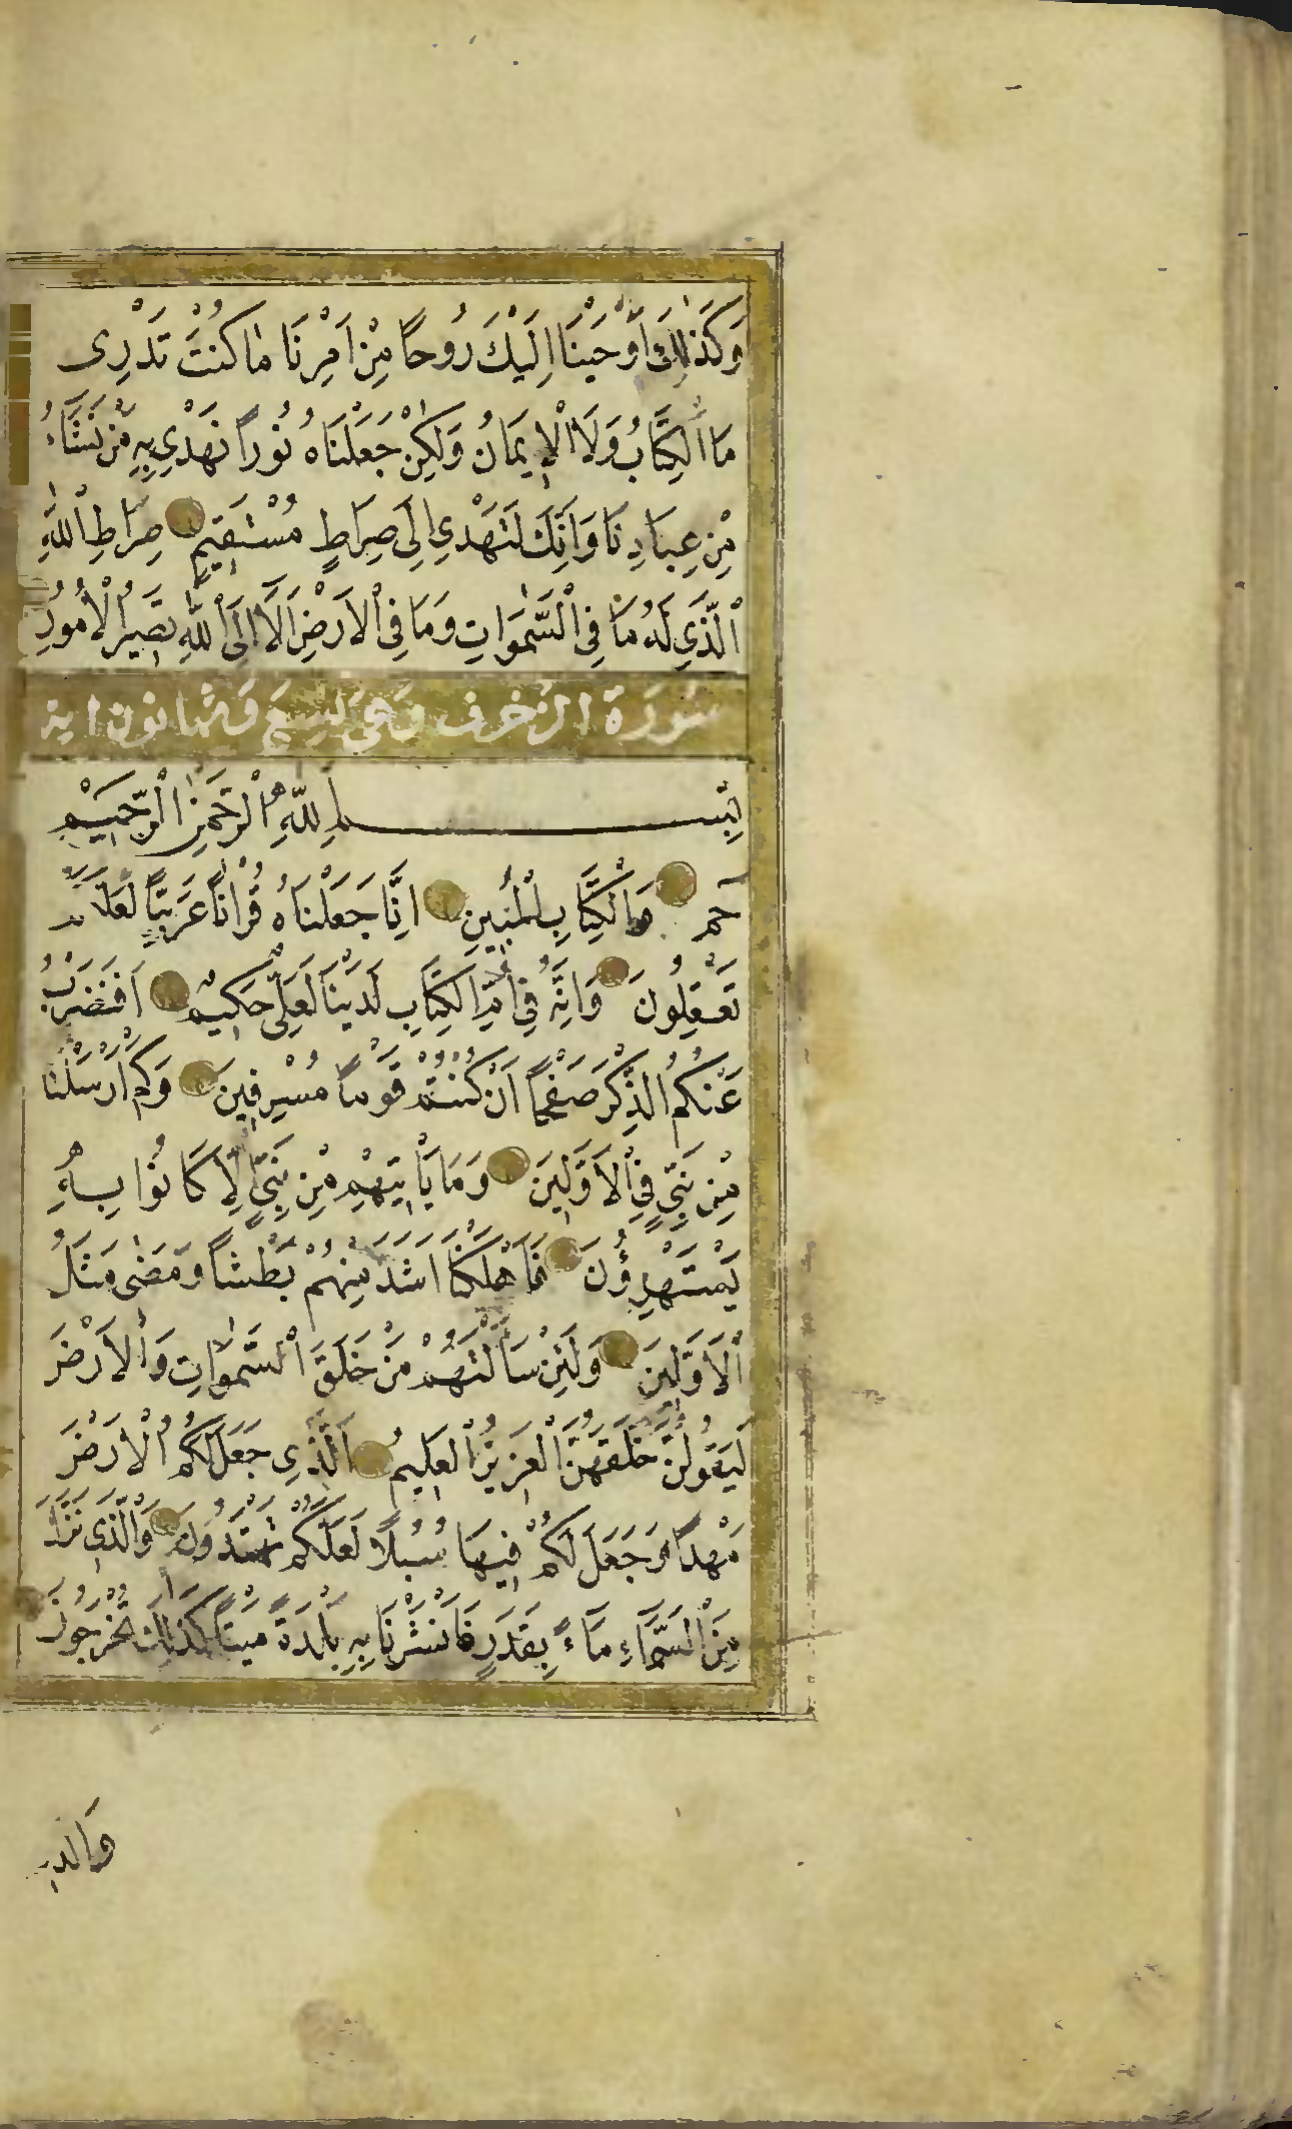 وَكَذٰلِكَ اَوْحَيْنَا اِلَيْكَ رُوحًا مِنْ اَمْرِنَا مَا كُنْتَ تَدْرِى
مَا الْكِتَابُ وَلَا الْاِيمَانُ وَلٰكِنْ جَعَلْنَاهُ نُورًا نَهْدِي بِهِ مَنْ نَشَاءُ
مِنْ عِبَادِنَا وَاِنَّكَ لَتَهْدِي اِلَى صِرَاطٍ مُسْتَقِيمٍ صِرَاطِ اللّٰهِ
الَّذِي لَهُ مَا فِي السَّمٰوَاتِ وَمَا فِي الْاَرْضِ اَلَا اِلَى اللّٰهِ تَصِيرُ الْاُمُورُ
سُورَة الزخرف وَهى تسِع وَثمانون اية
بِسْمِ اللّٰهِ الرَّحْمٰنِ الرَّحِيْمِ
حٓم وَالْكِتَابِ الْمُبِينِ اِنَّا جَعَلْنَاهُ قُرْاٰنًا عَرَبِيًّا لَعَلَّكُمْ
تَعْقِلُونَ وَاِنَّهُ فِي اُمِّ الْكِتَابِ لَدَيْنَا لَعَلِيٌّ حَكِيمٌ اَفَنَضْرِبُ
عَنْكُمُ الذِّكْرَ صَفْحًا اَنْ كُنْتُمْ قَوْمًا مُسْرِفِينَ وَكَمْ اَرْسَلْنَا
مِنْ نَبِيٍّ فِي الْاَوَّلِينَ وَمَا يَاْتِيهِمْ مِنْ نَبِيٍّ اِلَّا كَانُوا بِهِ
يَسْتَهْزِؤُنَ فَاَهْلَكْنَا اَشَدَّ مِنْهُمْ بَطْشًا وَمَضٰى مَثَلُ
الْاَوَّلِينَ وَلَئِنْ سَاَلْتَهُمْ مَنْ خَلَقَ السَّمٰوَاتِ وَالْاَرْضَ
لَيَقُولُنَّ خَلَقَهُنَّ الْعَزِيزُ الْعَلِيمُ اَلَّذِى جَعَلَ لَكُمُ الْاَرْضَ
مَهْدًا وَجَعَلَ لَكُمْ فِيهَا سُبُلًا لَعَلَّكُمْ تَهْتَدُونَ وَالَّذِي نَزَّلَ
مِنَ السَّمَاءِ مَاءً بِقَدَرٍ فَاَنْشَرْنَا بِهِ بَلْدَةً مَيْتًا كَذٰلِكَ تُخْرَجُونَ
وَالذِي